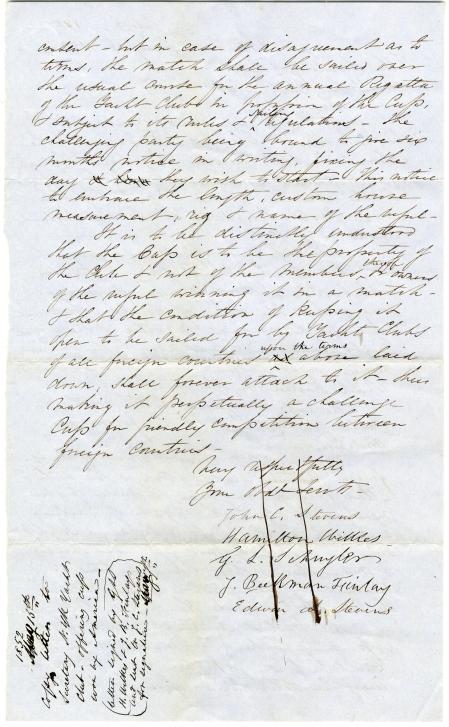 consent - but in case of disagreement as to
terms, the match shall be sailed over
the usual course for the annual Regatta
of the Yacht Club in possession of the Cup,
& subject to its Rules & Sailing Regulations - the
challenging party being bound to give six
months notice in writing, fixing the
day they wish to start - This notice
to embrace the length, custom house
measurement, rig & name of the vessel -
It is to be distinctly understood
that the Cup is to be the property of
the Club & not of the members thereof, or owners
of the vessel winning it in a match -
& that the condition of keeping it
open to be sailed for by Yacht Clubs
of all foreign countries upon the terms above laid
down, shall forever attach to it - thus
making it perpetually a challenge
Cup for friendly competition between
foreign countries -
Very respectfully
Your Obdt Servts -
John C. Stevens
Hamilton Wilkes -
G. L. Schuyler
J. Beekman Finlay
Edwin A. Stevens
1852
copy letter to
Secretary N. York Yacht
Club - offering cup
won by America -